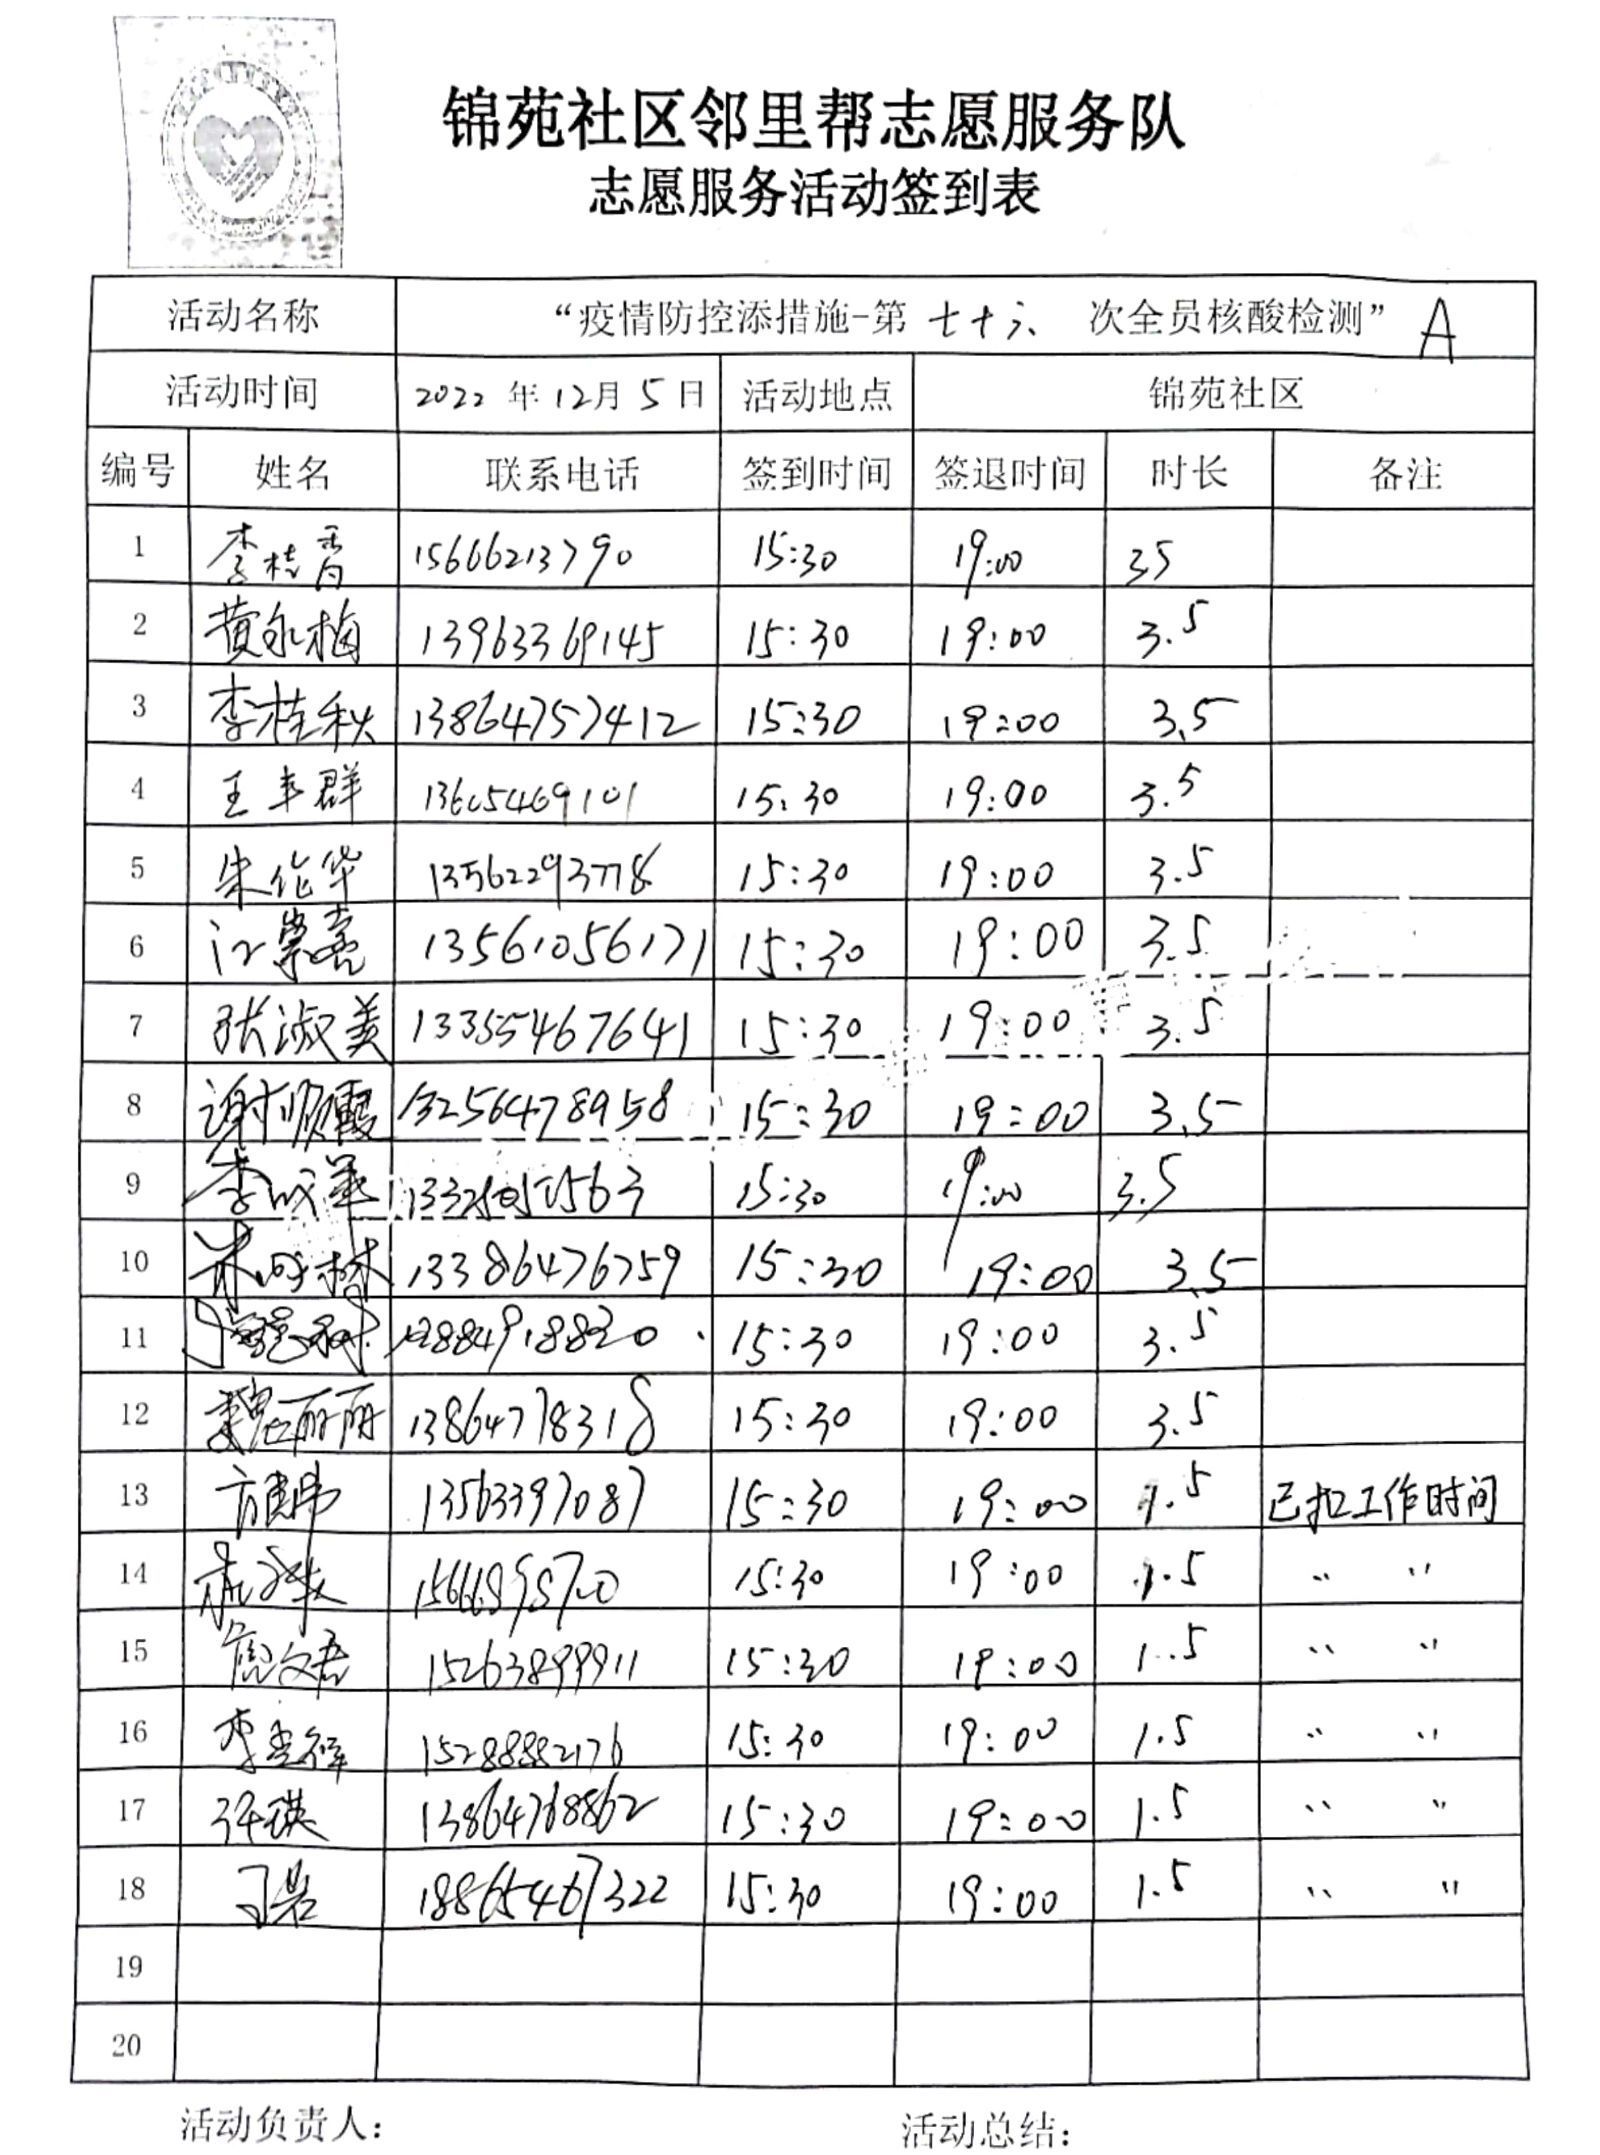 锦苑社区邻里帮志愿服务队
志愿服务活动签到表
活动名称 “疫情防控添措施-第 七十六 次全员核酸检测” A
活动时间 2022 年 12月 5 日 活动地点 锦苑社区
编号 姓名 联系电话 签到时间 签退时间 时长 备注
1 李桂香 15666213790 15:30 19:00 35
2 黄永梅 13963369145 15:30 19:00 3.5
3 李桂秋 13864757412 15:30 19:00 3.5
4 王丰群 13605469101 15:30 19:00 3.5
5 朱作华 13562293778 15:30 19:00 3.5
6 江崇嘉 13561056171 15:30 19:00 3.5
7 张淑美 13355467641 15:30 19:00 3.5
8 谢顺霞 13256478958 15:30 19:00 3.5
9 15:30 19:00 3.5
10 13386476759 15:30 19:00 3.5
11 15:30 19:00 3.5
12 魏丽丽 13864778318 15:30 19:00 3.5
13 13563397087 15:30 19:00 1.5 已扣工作时间
14 15:30 19:00 1.5 〃 〃
15 15263899911 15:30 19:00 1.5 〃 〃
16 15288882176 15:30 19:00 1.5 〃 〃
17 13864768862 15:30 19:00 1.5 〃 〃
18 18865467322 15:30 19:00 1.5 〃 〃
19
20
活动负责人： 活动总结：